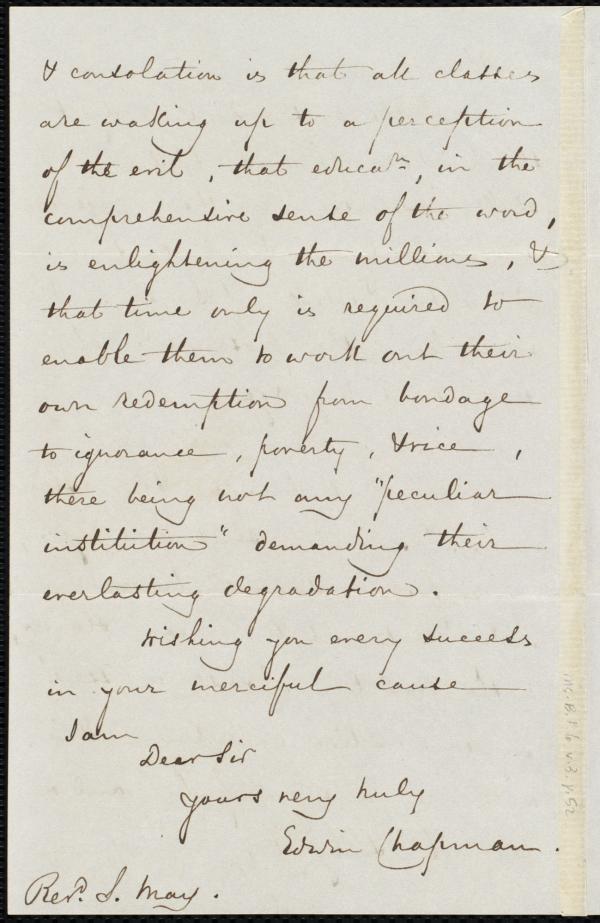 & consolation is that all classes
are waking up to a perception
of the evil, that educatn, in the
comprehensive sense of the word,
is enlightening the millions, &
that time only is required to
enable them to work out their
own redemption from bondage
to ignorance, poverty, & vice,
there being not any "peculiar
institution" demanding their
everlasting degradation.
Wishing you every success
in your merciful cause
I am
Dear Sir
yours very truly
Edwin Chapman.
Revd. S. May.
Ms. B.1.6 v.3. p52